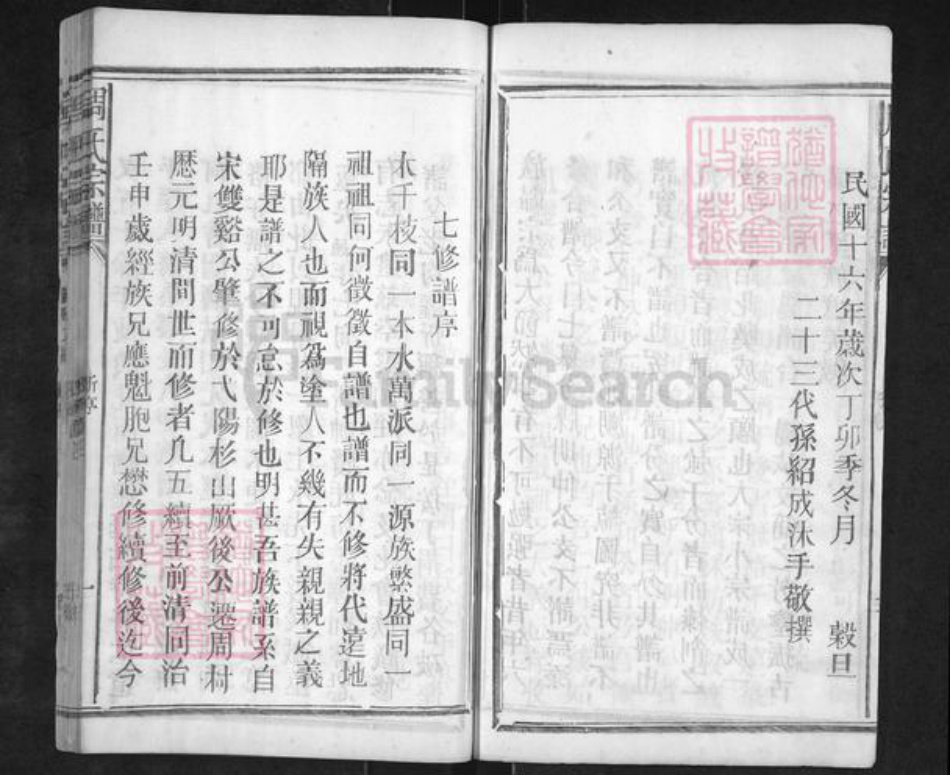 民國十六年歲次丁卯季冬月 穀旦
二十三代孫紹成沐手敬撰
七修譜序
木千枝同一本水萬派同一源族繁盛同一
祖祖同何徵徵自譜也譜而不修將代遠地
隔族人也而視為塗人不幾有失親親之義
耶是譜之不可怠於修也明甚吾族譜系自
宋雙谿公肇修於弋陽杉山厥後公遷周村
歷元明清間世而修者凡五續至前清同治
壬申歲經族兄應魁胞兄懋修續修後迄今
周氏宗譜
新序
一
FamilySearch